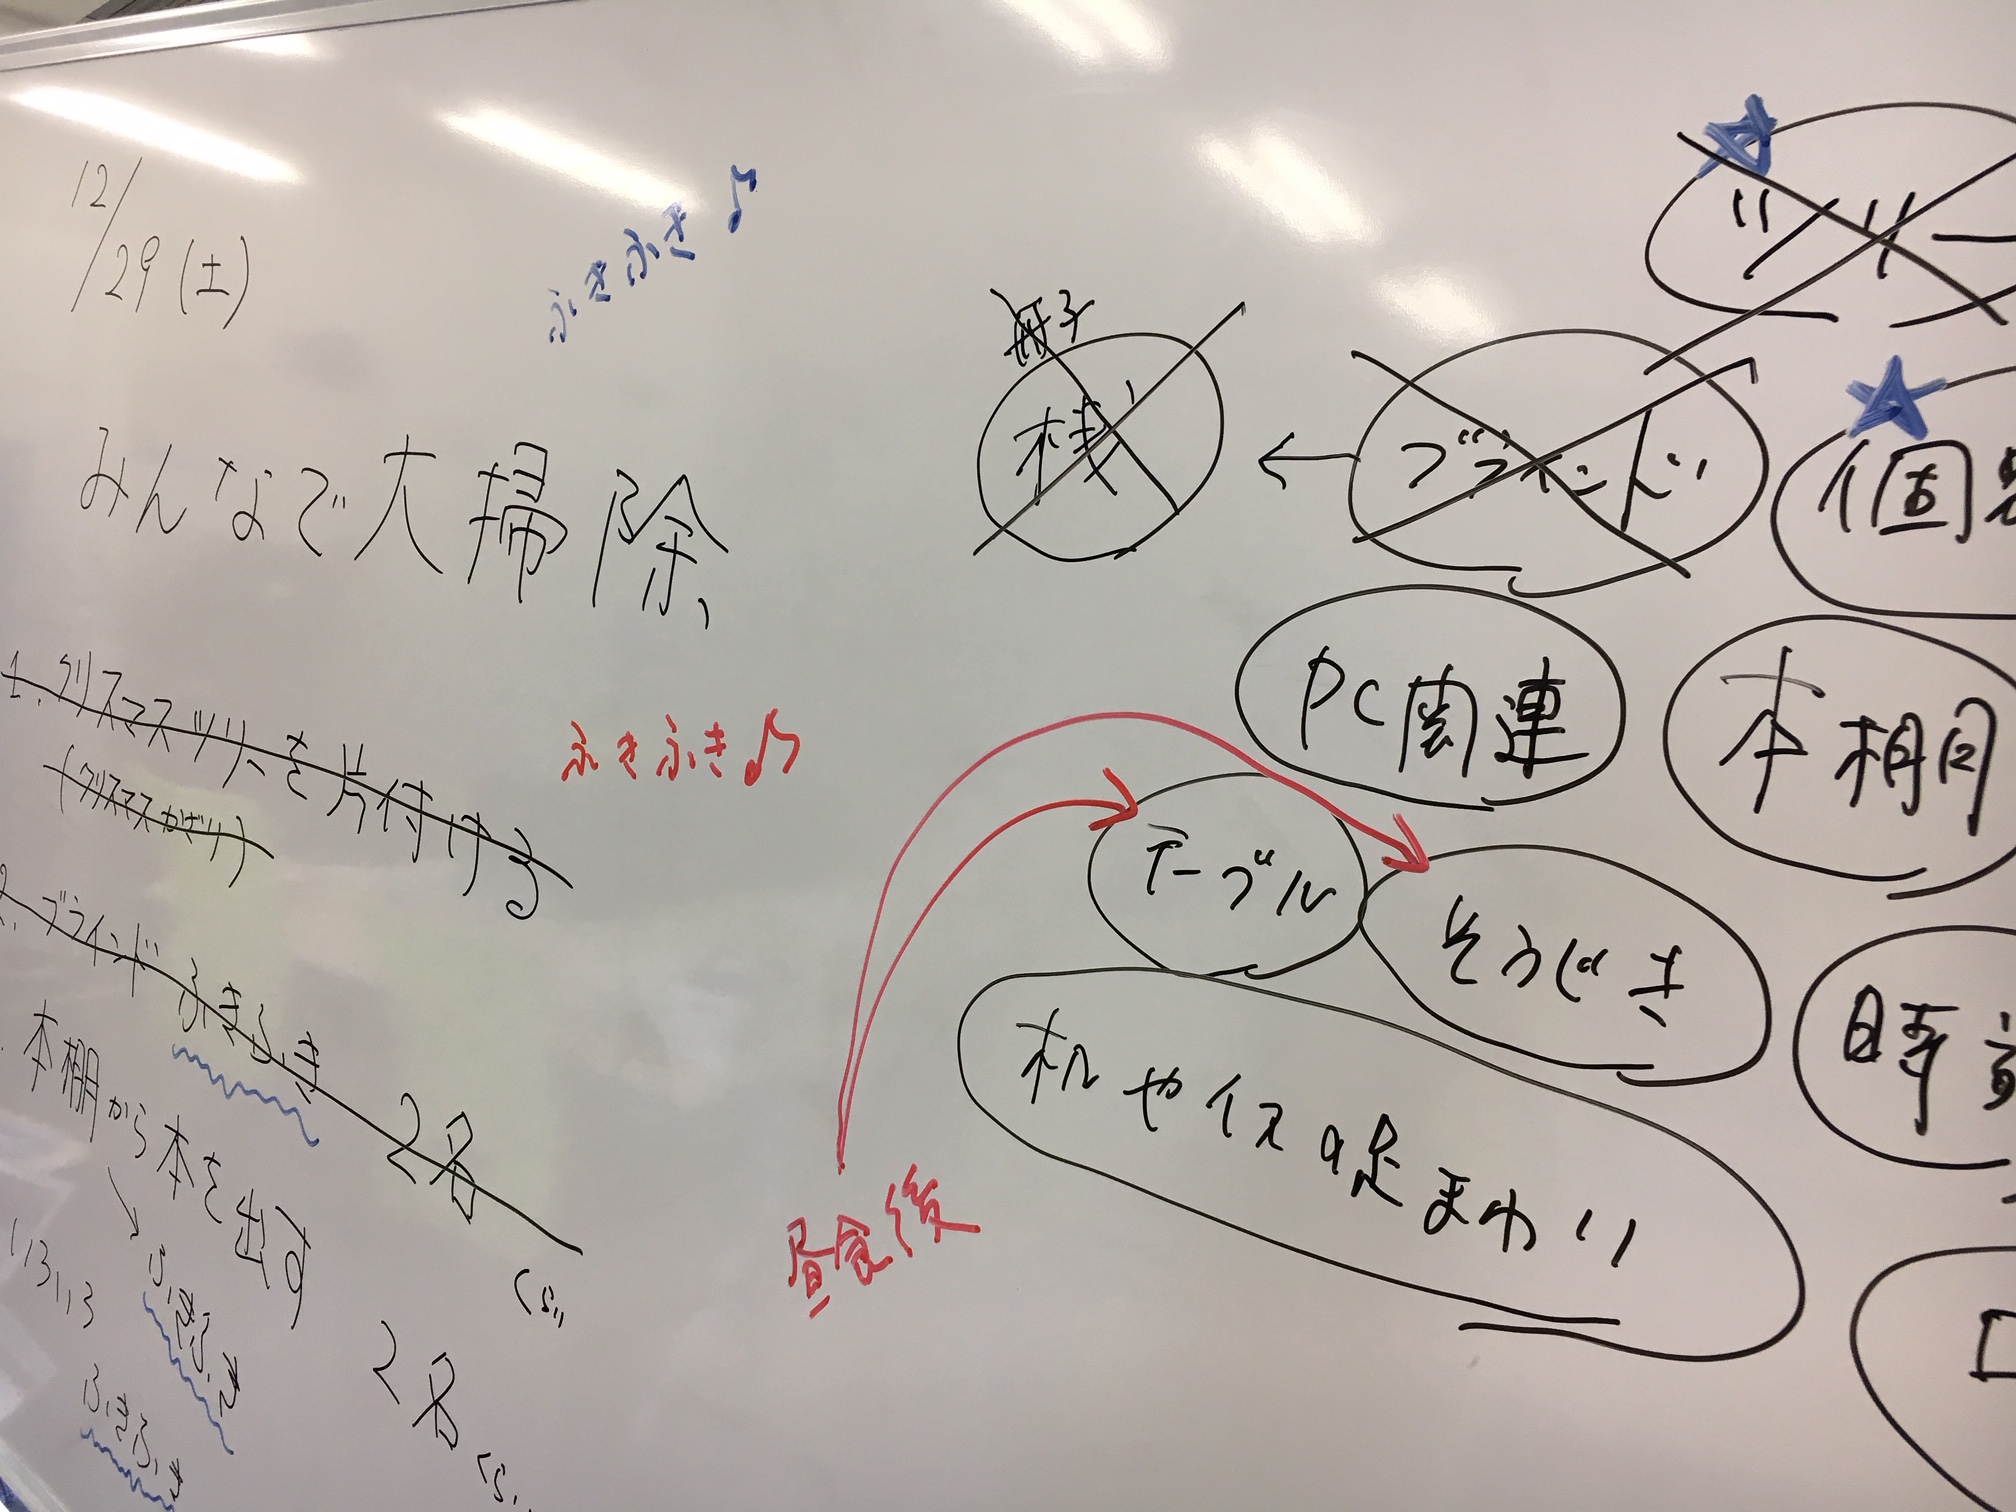 12/29(土)
ふきふき♪
みんなで大掃除、
1. クリスマスツリーを片付ける
(クリスマスかざり)
ふきふき♪
2. ブラインドふきふき 2名
くらい
本棚から本を出す
↓
ふきふき
いろいろ
ふきふき
2名
くらい
ツリー
冊子
棧
←
ブラインド
個
PC関連
本棚
テーブル
そうじき
机やイスの足まわり
時
昼食後